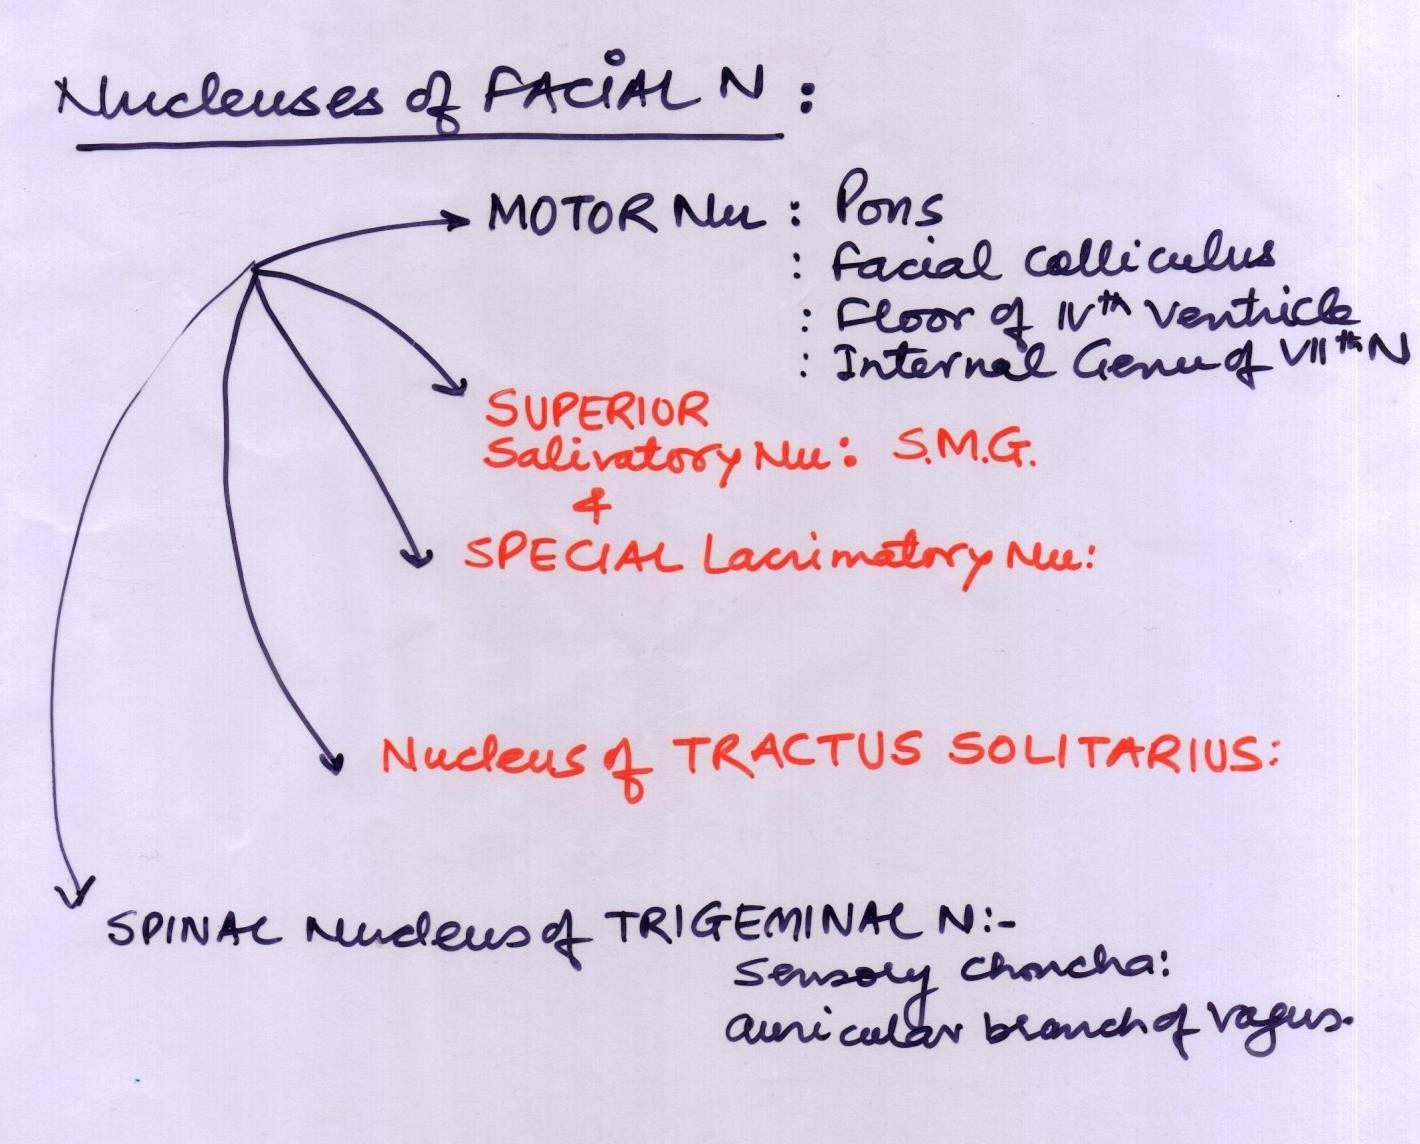 Nucleuses of FACIAL N :
MOTOR Nu : Pons
: Facial Colliculus
: Floor of IVth Ventricle
: Internal Genu of VIIth N
SUPERIOR
Salivatory Nu : S.M.G.
&
SPECIAL Lacrimatory Nu:
Nucleus of TRACTUS SOLITARIUS:
SPINAL Nucleus of TRIGEMINAL N:-
Sensory Choncha:
auricular branch of vagus.